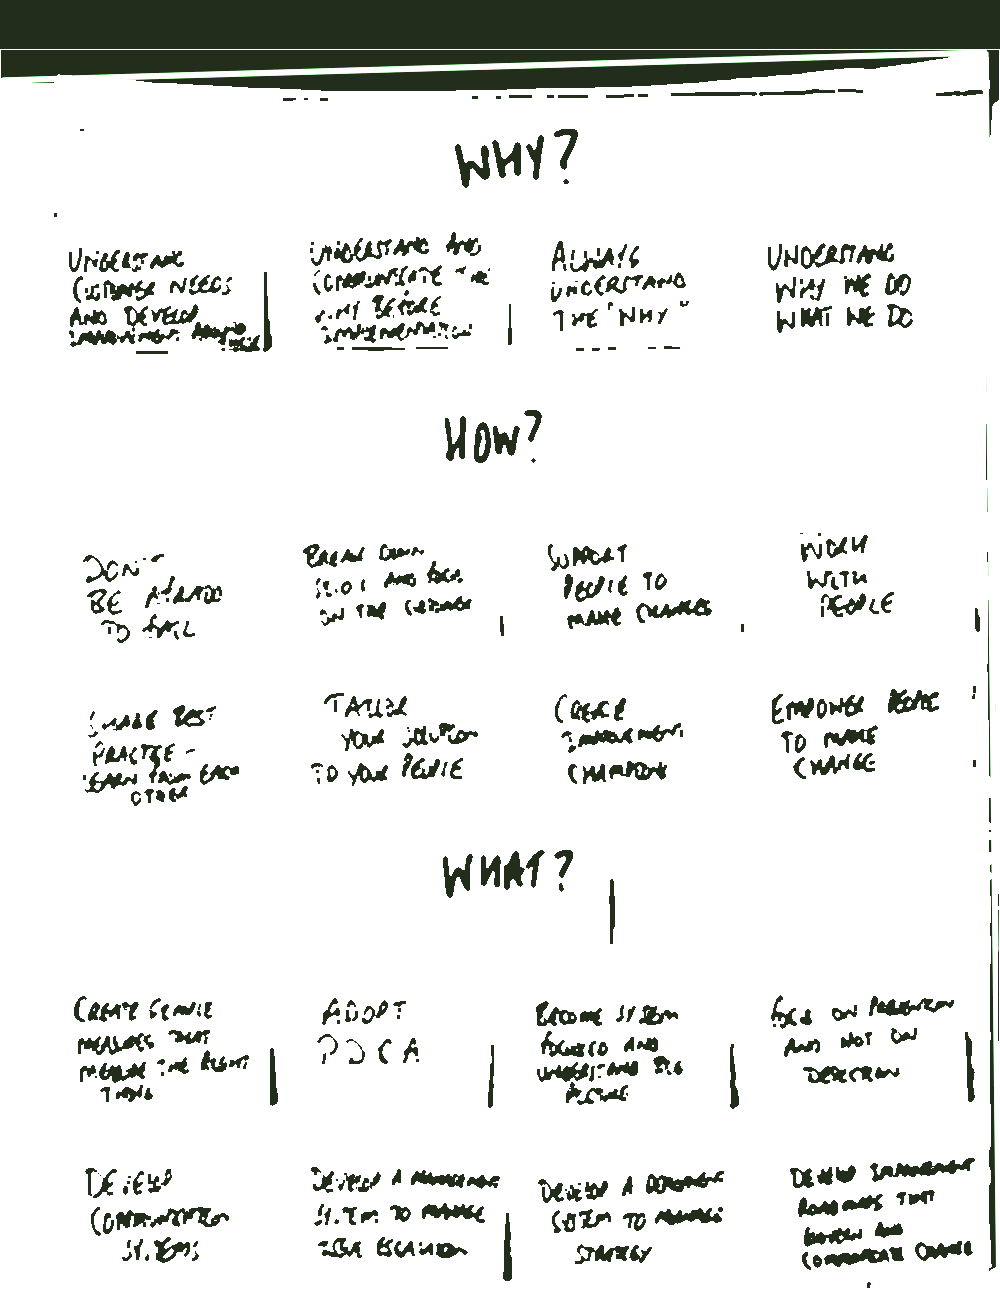 WHY?
UNDERSTAND
CUSTOMER NEEDS
AND DEVELOP
IMPROVEMENT AROUND
THESE
UNDERSTAND AND
COMMUNICATE THE
WHY BEFORE
IMPLEMENTATION
ALWAYS
UNDERSTAND
THE "WHY"
UNDERSTAND
WHY WE DO
WHAT WE DO
HOW?
DON'T
BE AFRAID
TO FAIL
BREAK DOWN
SILOS AND FOCUS
ON THE CUSTOMER
SUPPORT
PEOPLE TO
MAKE CHANGES
WORK
WITH
PEOPLE
SHARE BEST
PRACTICE -
LEARN FROM EACH
OTHER
TAILOR
YOUR SOLUTION
TO YOUR PEOPLE
CREATE
IMPROVEMENT
CHAMPION
EMPOWER PEOPLE
TO MAKE
CHANGE
WHAT?
CREATE SERVICE
MEASURES THAT
MEASURE THE RIGHT
THING
ADOPT
PDCA
BECOME SYSTEM
FOCUSED AND
UNDERSTAND BIG
PICTURE
FOCUS ON PREVENTION
AND NOT ON
DETECTION
DEVELOP
COMMUNICATION
SYSTEMS
DEVELOP A MANAGEMENT
SYSTEM TO MANAGE
ISSUE ESCALATION
DEVELOP A
SYSTEM TO MANAGE
STRATEGY
DEVELOP IMPROVEMENT
ROADMAPS THAT
AND
COMMUNICATE CHANGE